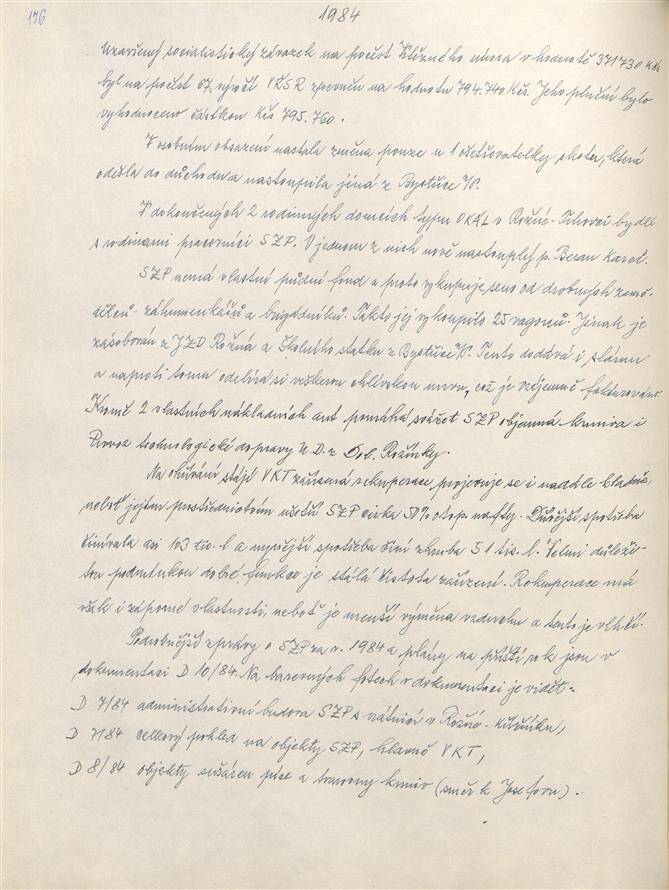 176
1984
Uzavřený socialistický závazek na počest Vítězného února v hodnotě 371730 Kčs
byl na počest 67. výročí VŘSR zpevněn na hodnotu 794.740 Kčs. Jeho plnění bylo
vyhodnoceno částkou Kčs 795.760.
V osobním obsazení nastala změna pouze u 1 ošetřovatelky skotu, která
odešla do důchodu a nastoupila jiná z Bystřice n/P.
V dokončených 2 rodinných domcích typu OKÁL v Rožné - bydlí
s rodinami pracovníci SZP. V jednom z nich nově nastouplý p. Beran Karel.
SZP nemá vlastní půdní fond a proto vykupuje seno od drobných země-
dělců - záhumenkářů a brigádníků. Takto jej vykoupilo 25 vagonů. Jinak je
zásobován z JZD Rožná a Školního statku z Bystřice n/P. Tento dodává i slámu
a naproti tomu odebírá si veškerou chlévskou mrvu, což je vzájemně fakturováno.
Kromě 2 vlastních nákladních aut pomáhá svážet SZP objemná krmiva i
Provoz technologické dopravy U.D. z Dol. Rožínky.
Na ohřívání stájí VKT zařízená rekuperace projevuje se i nadále kladně,
neboť jejím prostřednictvím ušetří SZP cirka 50% otop. nafty. Dřívější spotřeba
činívala asi 103 tis. l a nynější spotřeba činí zhruba 51 tis. l. Velmi důleži-
tou podmínkou dobré funkce je stálá čistota zařízení. Rekuperace má
však i záporné vlastnosti, neboť je menší výměna vzduchu a tento je vlhčí.
Podrobnější zprávy o SZP za r. 1984 a plány na příští rok jsou v
dokumentaci D 10/84. Na barevných fotech v dokumentaci je vidět:
D 7/84 administrativní budova SZP s vrátnicí v Rožné -
D 7/84 celkový pohled na objekty SZP, hlavně VKT,
D 8/84 objekty sušáren píce a tvarovny krmiv (směr k Josefovu).